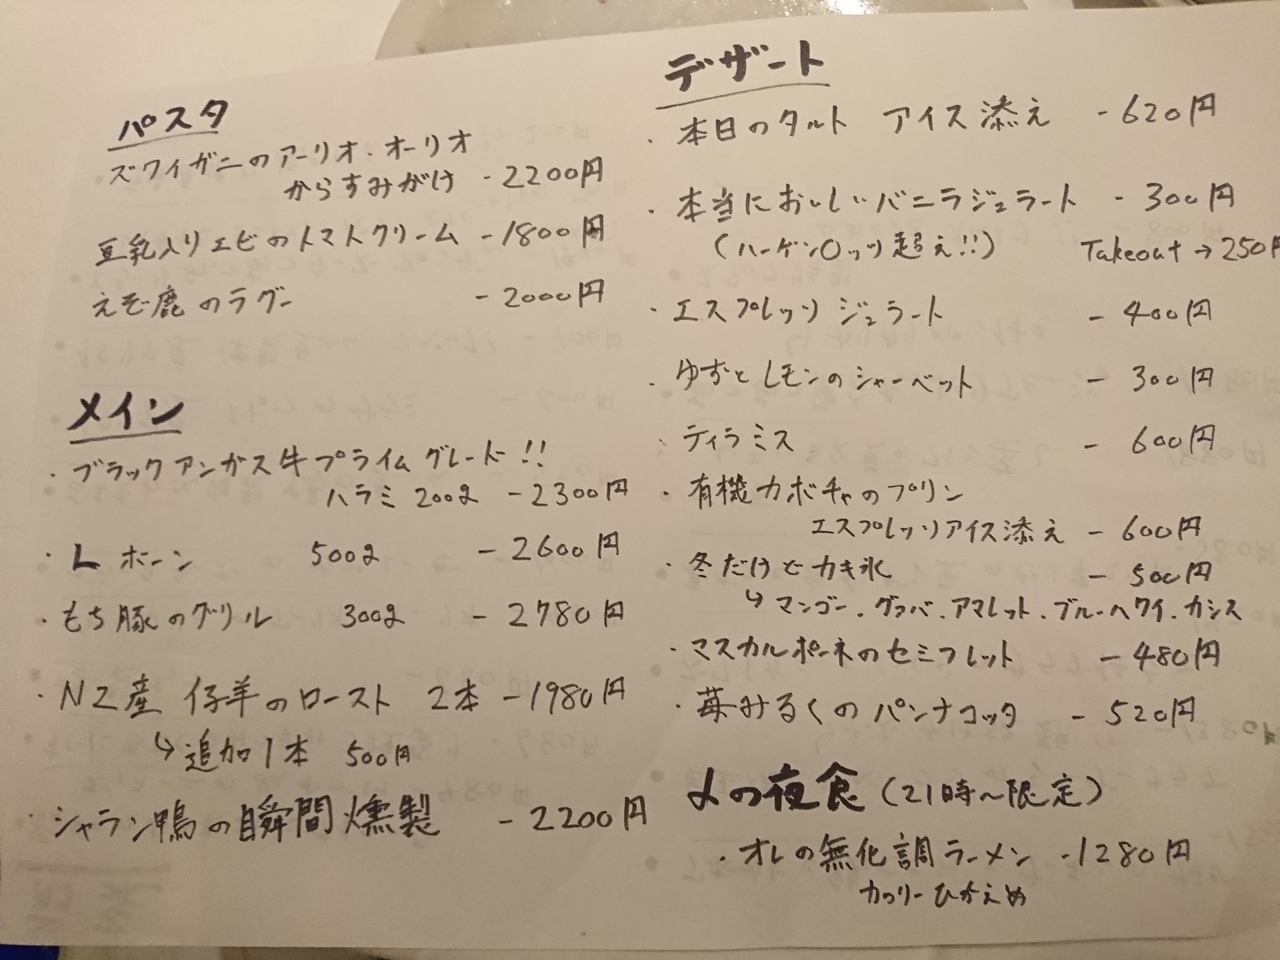 パスタ
ズワイガニのアーリオ・オーリオ
からすみがけ -2200円
豆乳入りエビのトマトクリーム -1800円
えぞ鹿のラグー -2000円
メイン
・ブラックアンガス牛プライムグレード!!
ハラミ 200g -2300円
・Lボーン 500g -2600円
・もち豚のグリル 300g -2780円
・NZ産 仔羊のロースト 2本 -1980円
↳追加1本 500円
・シャラン鴨の瞬間燻製 -2200円
デザート
・本日のタルト アイス添え -620円
・本当においしいバニラジェラート -300円
(ハーゲン〇ッツ超え!!) Takeout→250円
・エスプレッソジェラート -400円
・ゆずとレモンのシャーベット -300円
・ティラミス -600円
・有機カボチャのプリン
エスプレッソアイス添え -600円
・冬だけどカキ氷 -500円
↳マンゴー.グァバ.アマレット.ブルーハワイ.カシス
・マスカルポーネのセミフレット -480円
・苺みるくのパンナコッタ -520円
の夜食(21時〜限定)
・オレの無化調ラーメン -1280円
カロリーひかえめ